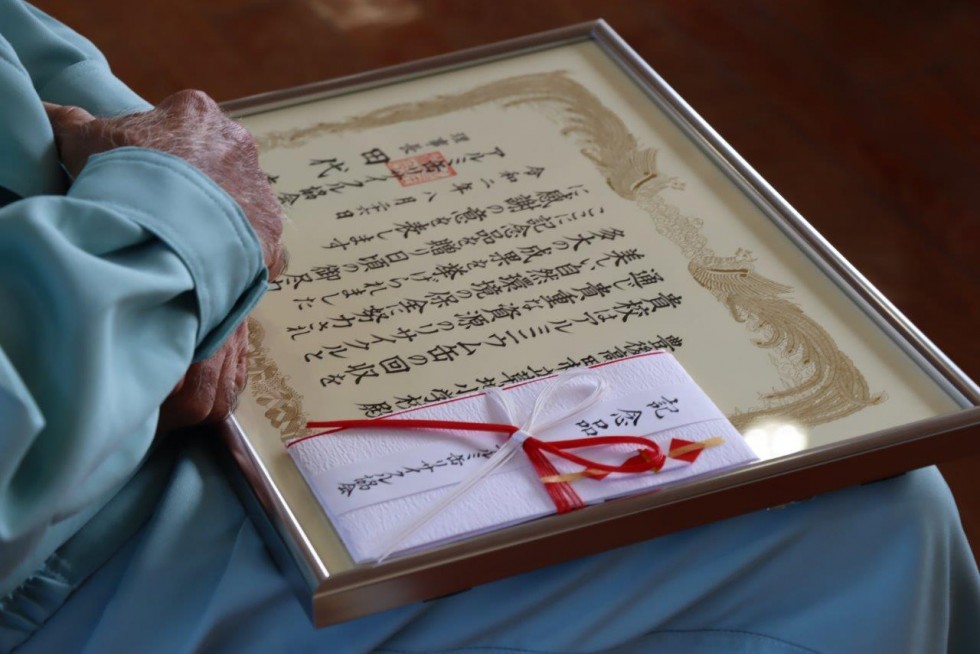 豊後高田市立 小学校殿
貴校はアルミニウム缶の回収を
通じ貴重な資源のリサイクルと
美しい自然環境の保全に努力され
多大の成果を挙げられました
ここに記念品を贈り日頃の御尽力
に感謝の意を表します
令和二年 八月
アルミ缶リサイクル協会
理事長 田代
記念品
アルミ缶リサイクル協会